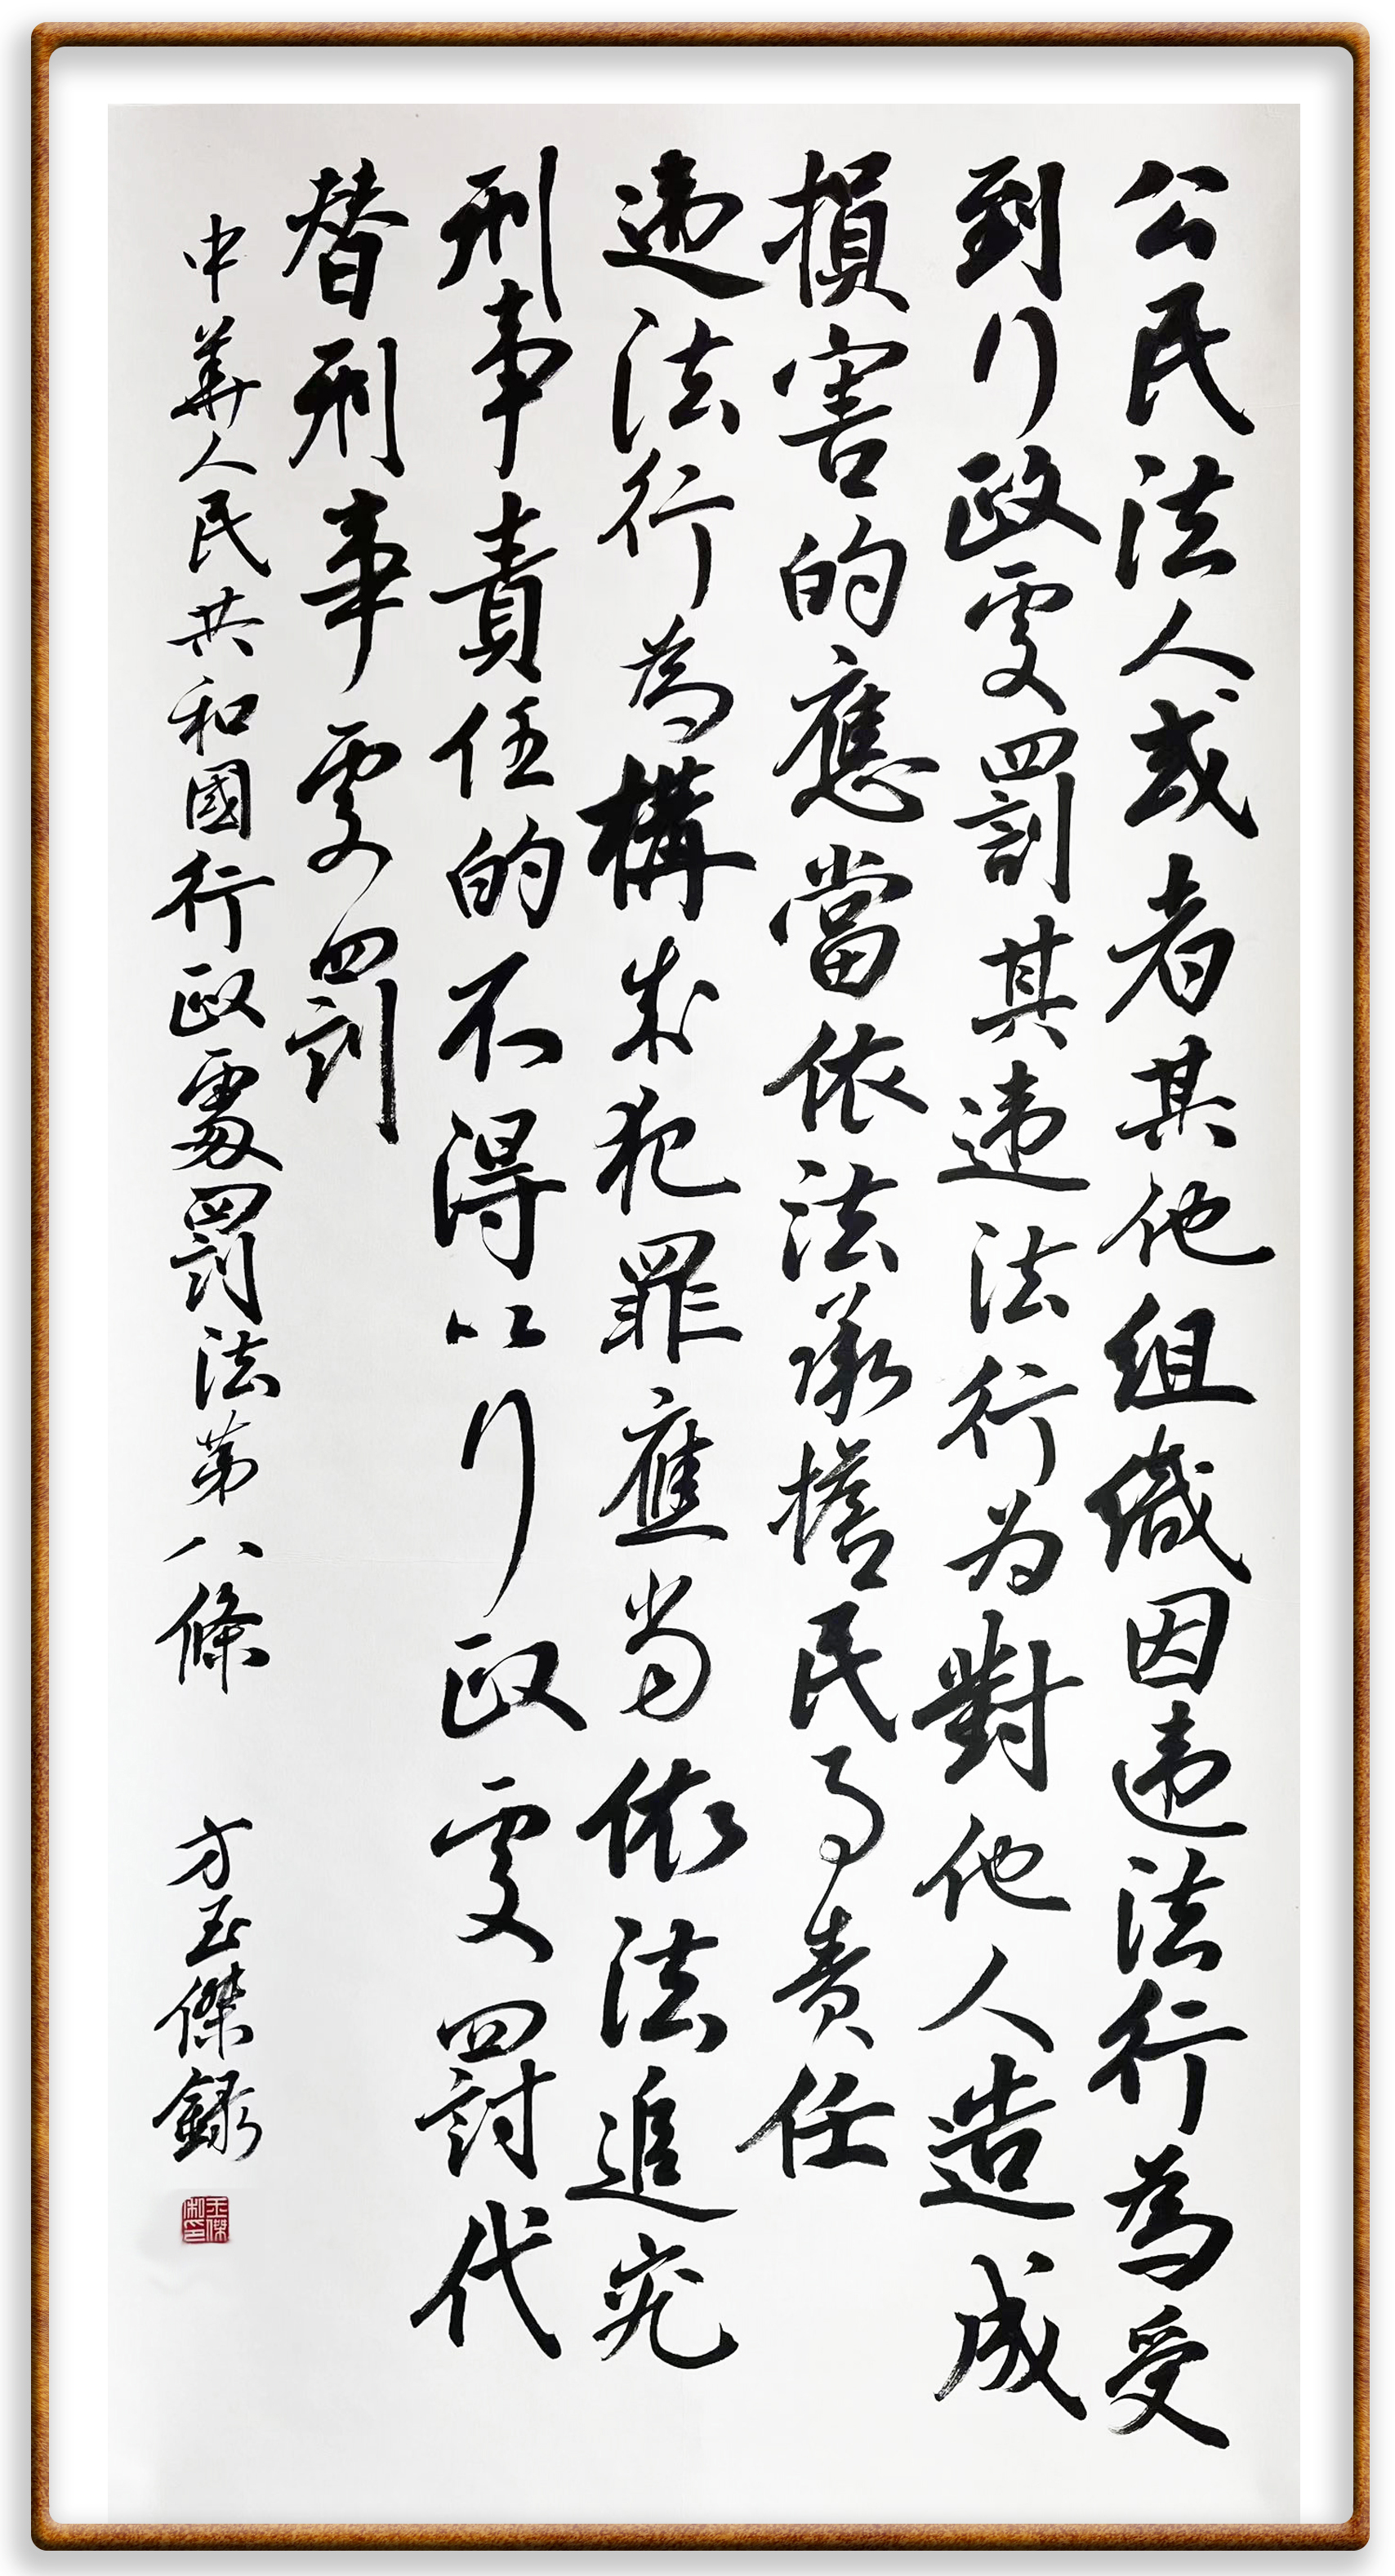 公民法人或者其他组織因违法行為受
到行政處罰其违法行为對他人造成
損害的應當依法承擔民事责任
违法行為構成犯罪應當依法追究
刑事責任的不得以行政處罰代
替刑事處罰
中華人民共和國行政處罰法第八條 方玉傑録
玉傑私印